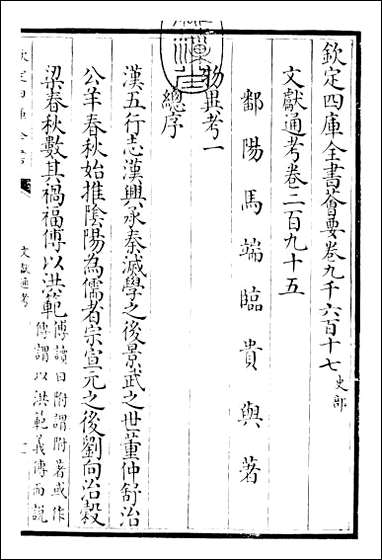 欽定四庫全書薈要卷九千六百十七 史部
文獻通考卷二百九十五
鄱陽馬端臨貴與著
物異考一
總序
漢五行志漢興承秦滅學之後景武之世董仲舒治
公羊春秋始推陰陽為儒者宗宣元之後劉向治穀
梁春秋數其禍福傅以洪範 傅讀曰附謂附著或作
傳謂以洪範義傳而說
文獻通考